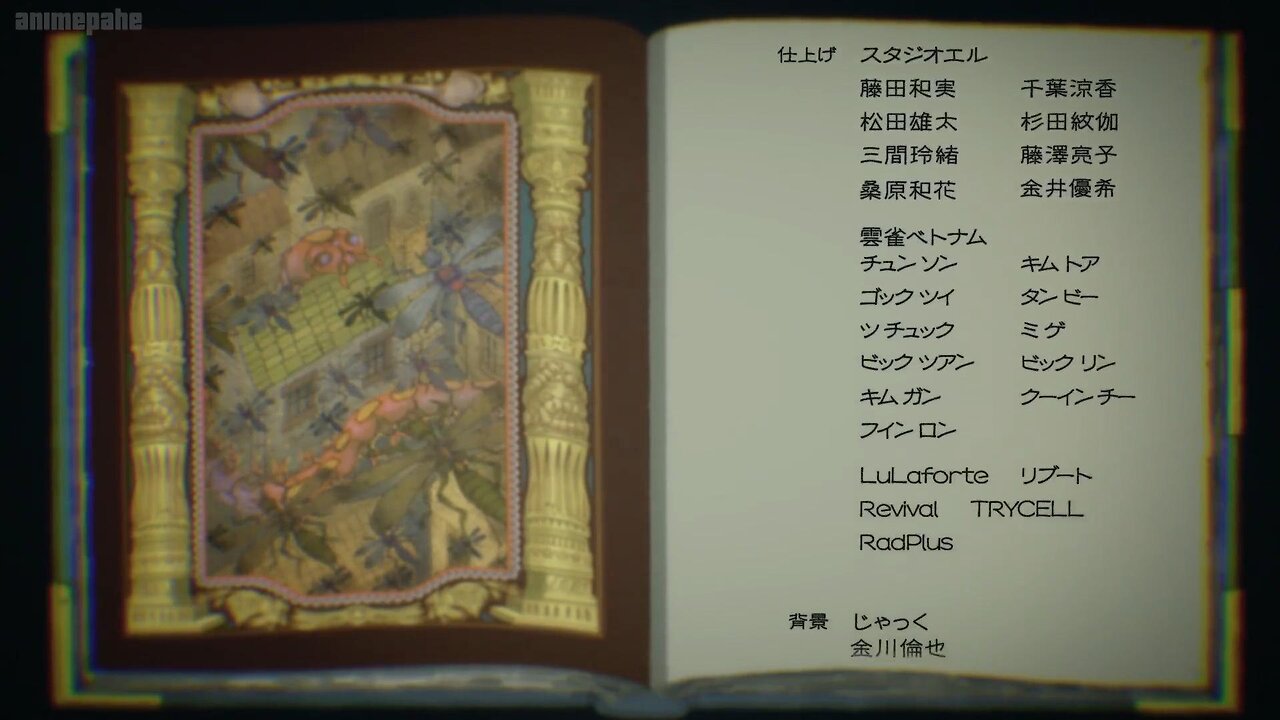 animepahe
仕上げ スタジオエル
藤田和実 千葉涼香
松田雄太 杉田紋伽
三間玲緒 藤澤亮子
桑原和花 金井優希
雲雀ベトナム
チュン ソン キム トア
ゴック ツイ タン ビー
ツ チュック ミ ゲ
ビック ツアン ビック リン
キム ガン クーイン チー
フイン ロン
LuLaforte リブート
Revival TRYCELL
RadPlus
背景 じゃっく
金川倫也